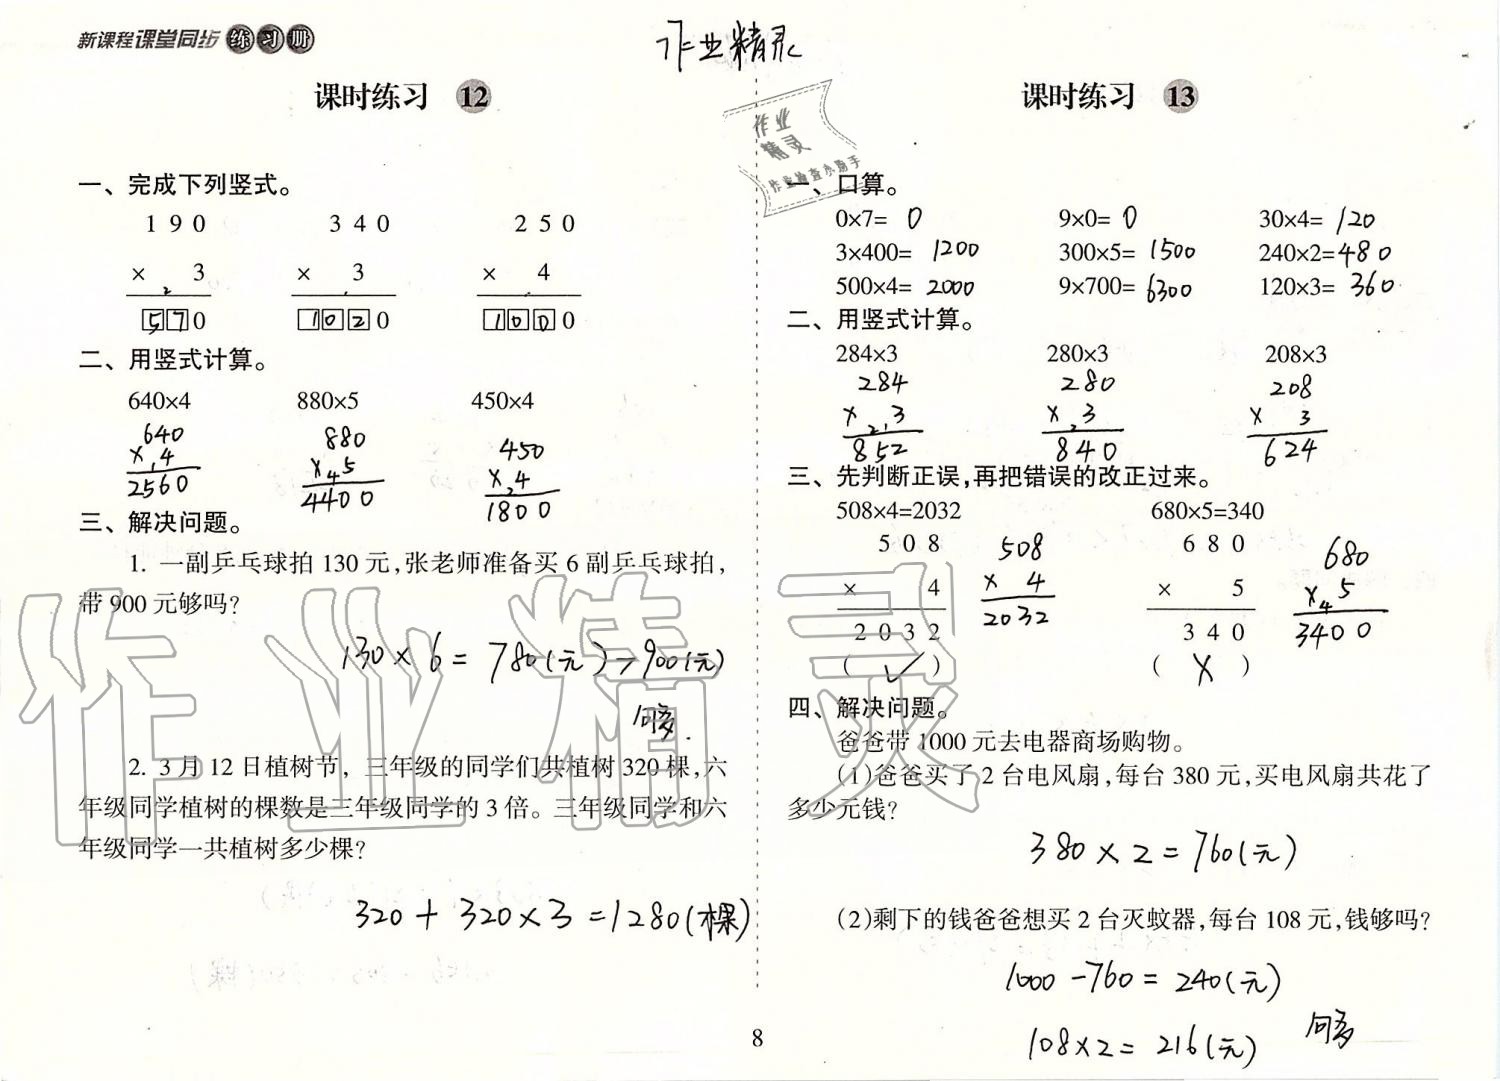 新课程课堂同步练习册
作业精灵
课时练习 12
一、完成下列竖式。
190 340 250
× 3 × 3 × 4
2
570 1020 1000
二、用竖式计算。
640×4 880×5 450×4
640 880 450
×1 4 ×4 5 ×2 4
2560 4400 1800
三、解决问题。
1. 一副乒乓球拍 130 元,张老师准备买 6 副乒乓球拍,
带 900 元够吗?
130×6=780(元)
900(元)
2. 3 月 12 日植树节, 三年级的同学们共植树 320 棵,六
年级同学植树的棵数是三年级同学的 3 倍。三年级同学和六
年级同学一共植树多少棵?
320+320×3=1280(棵)
课时练习 13
作业
精灵
作业检查小助手
一、口算。
0×7= 0 9×0= 0 30×4= 120
3×400= 1200 300×5= 1500 240×2= 480
500×4= 2000 9×700= 6300 120×3= 360
二、用竖式计算。
284×3 280×3 208×3
284 280 208
×2 1 3 ×2 3 × 3
852 840 624
三、先判断正误,再把错误的改正过来。
508×4=2032 680×5=340
508 508 680 680
× 4 × 4 × 5 ×4 5
2032 2032 340 3400
( ✓ ) ( × )
四、解决问题。
爸爸带 1000 元去电器商场购物。
(1)爸爸买了 2 台电风扇,每台 380 元,买电风扇共花了
多少元钱?
380×2=760(元)
(2)剩下的钱爸爸想买 2 台灭蚊器,每台 108 元,钱够吗?
1000-760=240(元)
108×2=216(元)
8
作业精灵